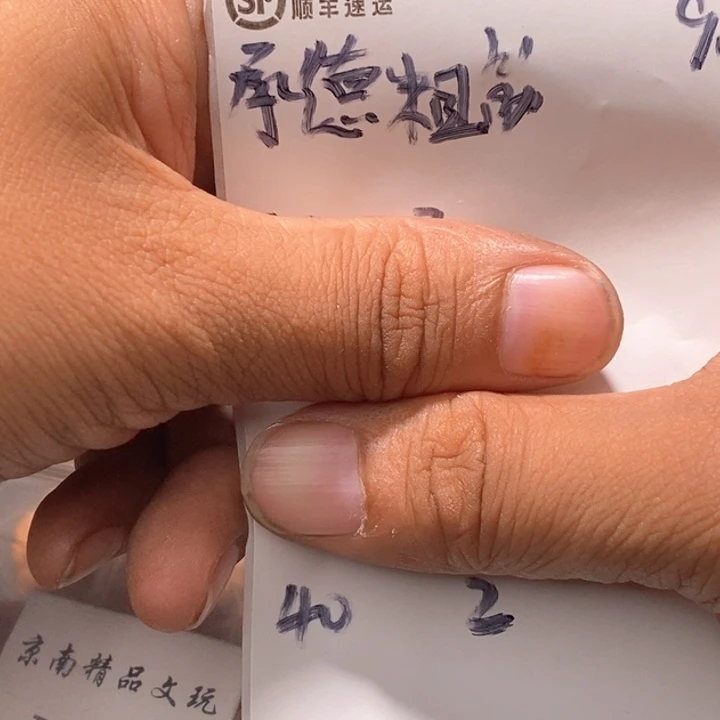 SF 顺丰速运
承德粗
40 2
京南精品文玩